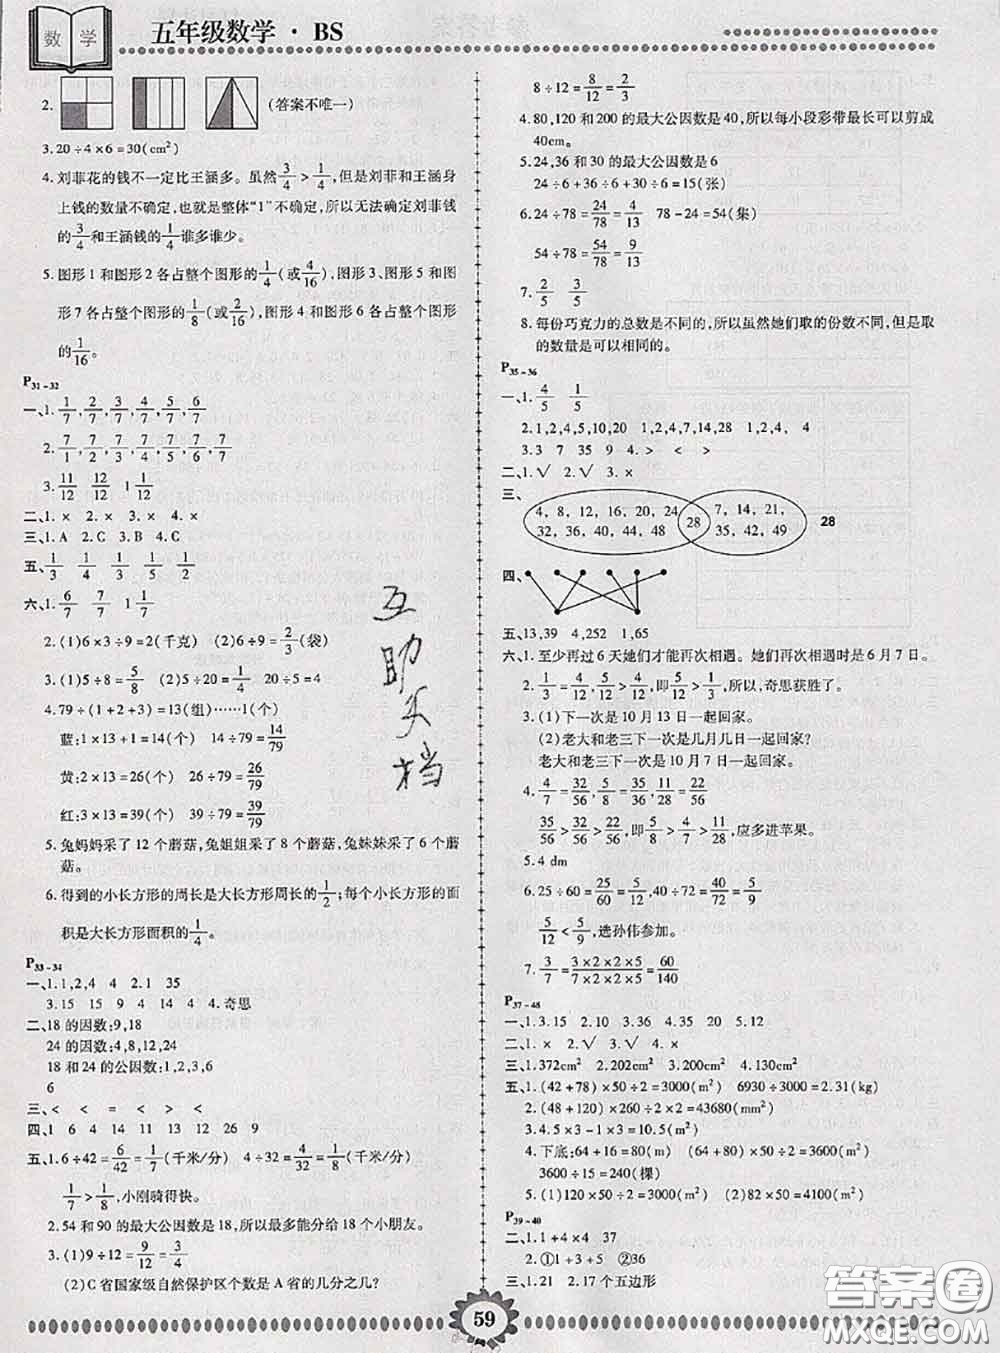 数 学
五年级数学 · BS
2. (答案不唯一)
3.20÷4×6=30(cm²)
4. 刘菲花的钱不一定比王涵多。虽然3/4>1/4,但是刘菲和王涵身
上钱的数量不确定,也就是整体“1”不确定,所以无法确定刘菲钱
的3/4和王涵钱的1/4谁多谁少。
5. 图形1和图形2各占整个图形的1/4(或4/16),图形3、图形5和图
形7各占整个图形的1/8(或2/16),图形4和图形6各占整个图形
的1/16。
P31-32
一、1. 1/7,2/7,3/7,4/7,5/7,6/7
2. 7/1,7/2,7/3,7/4,7/5,7/6,7/7
3. 11/12 12/12 1 1/12
二、1. × 2. × 3. × 4. ×
三、1. A 2. C 3. B 4. C
五、1/3 1/4 1/3 1/2 1/5 1/2
六、1. 6/7 7/7 1 1/7
2. (1)6×3÷9=2(千克) (2)6÷9=2/3(袋)
3. (1)5÷8=5/8 (2)5÷20=1/4 20÷5=4
4.79÷(1+2+3)=13(组)……1(个)
蓝:1×13+1=14(个) 14÷79=14/79
黄:2×13=26(个) 26÷79=26/79
红:3×13=39(个) 39÷79=39/79
5. 兔妈妈采了12个蘑菇,兔姐姐采了8个蘑菇,兔妹妹采了6个蘑
菇。
6. 得到的小长方形的周长是大长方形周长的1/2;每个小长方形的面
积是大长方形面积的1/4。
P33-34
一、1.1,2,4 4 2.1 35
3.15 15 9 4 14 4 4. 奇思
二、18的因数:9,18
24的因数:4,8,12,24
18和24的公因数:1,2,3,6
6
三、< < = > > <
四、1 6 4 14 11 13 12 26 9
五、1.6÷42=6/42=1/7(千米/分) 4÷32=4/32=1/8(千米/分)
1/7>1/8,小刚骑得快。
2.54和90的最大公因数是18,所以最多能分给18个小朋友。
3. (1)9÷12=9/12=3/4
(2)C省国家级自然保护区个数是A省的几分之几?
8÷12=8/12=2/3
4.80,120和200的最大公因数是40,所以每小段彩带最长可以剪成
40cm。
5.24,36和30的最大公因数是6
24÷6+36÷6+30÷6=15(张)
6.24÷78=24/78=4/13 78-24=54(集)
54÷78=54/78=9/13
7. 2/5 3/5
8. 每份巧克力的总数是不同的,所以虽然她们取的份数不同,但是取
的数量是可以相同的。
P35-36
一、1. 4/5 1/5
2.1,2,4,5,10,20 1,2,4,7,14,28 1,2,4, 4
3.3 7 35 9 4. > < >
二、1.√ 2.√ 3. ×
三、
4, 8, 12, 16, 20, 24
32, 36, 40, 44, 48
28
7, 14, 21,
35, 42, 49
28
四、
五、13,39 4,252 1,65
六、1. 至少再过6天她们才能再次相遇。她们再次相遇时是6月7日。
2. 1/3=4/12,5/12>4/12,即5/12>1/3,所以,奇思获胜了。
3. (1)下一次是10月13日一起回家。
(2)老大和老三下一次是几月几日一起回家?
老大和老三下一次是10月7日一起回家。
4. 4/7=32/56,5/8=35/56,11/28=22/56
35/56>32/56>22/56,即5/8>4/7>11/28,应多进苹果。
5.4 dm
6.25÷60=25/60=5/12,40÷72=40/72=5/9
5/12<5/9,选孙伟参加。
7. 3/7=3×2×2×5/7×2×2×5=60/140
P37-48
一、1.3.15 2.10 3.36 4.35 5.12
二、1. × 2.√ 3.√ 4. ×
三、1.372cm² 2.202cm² 3.60cm² 4.130cm²
五、1. (42+78)×50÷2=3000(m²) 6930÷3000=2.31(kg)
2. (48+120)×260÷2=43680(mm²)
3.4.5×3-1×3=10.5(m²)
4. 下底:64+16=80(m) (64+80)×50÷2=3600(m²)
3600÷15=240(棵)
5. (1)120×50÷2=3000(m²) (2)82×50=4100(m²)
P39-40
二、1.1+4×4 37
2.①1+3+5 ②36
三、1.21 2.17个五边形
互
助
文
档
59
答案圈
MXQE.COM